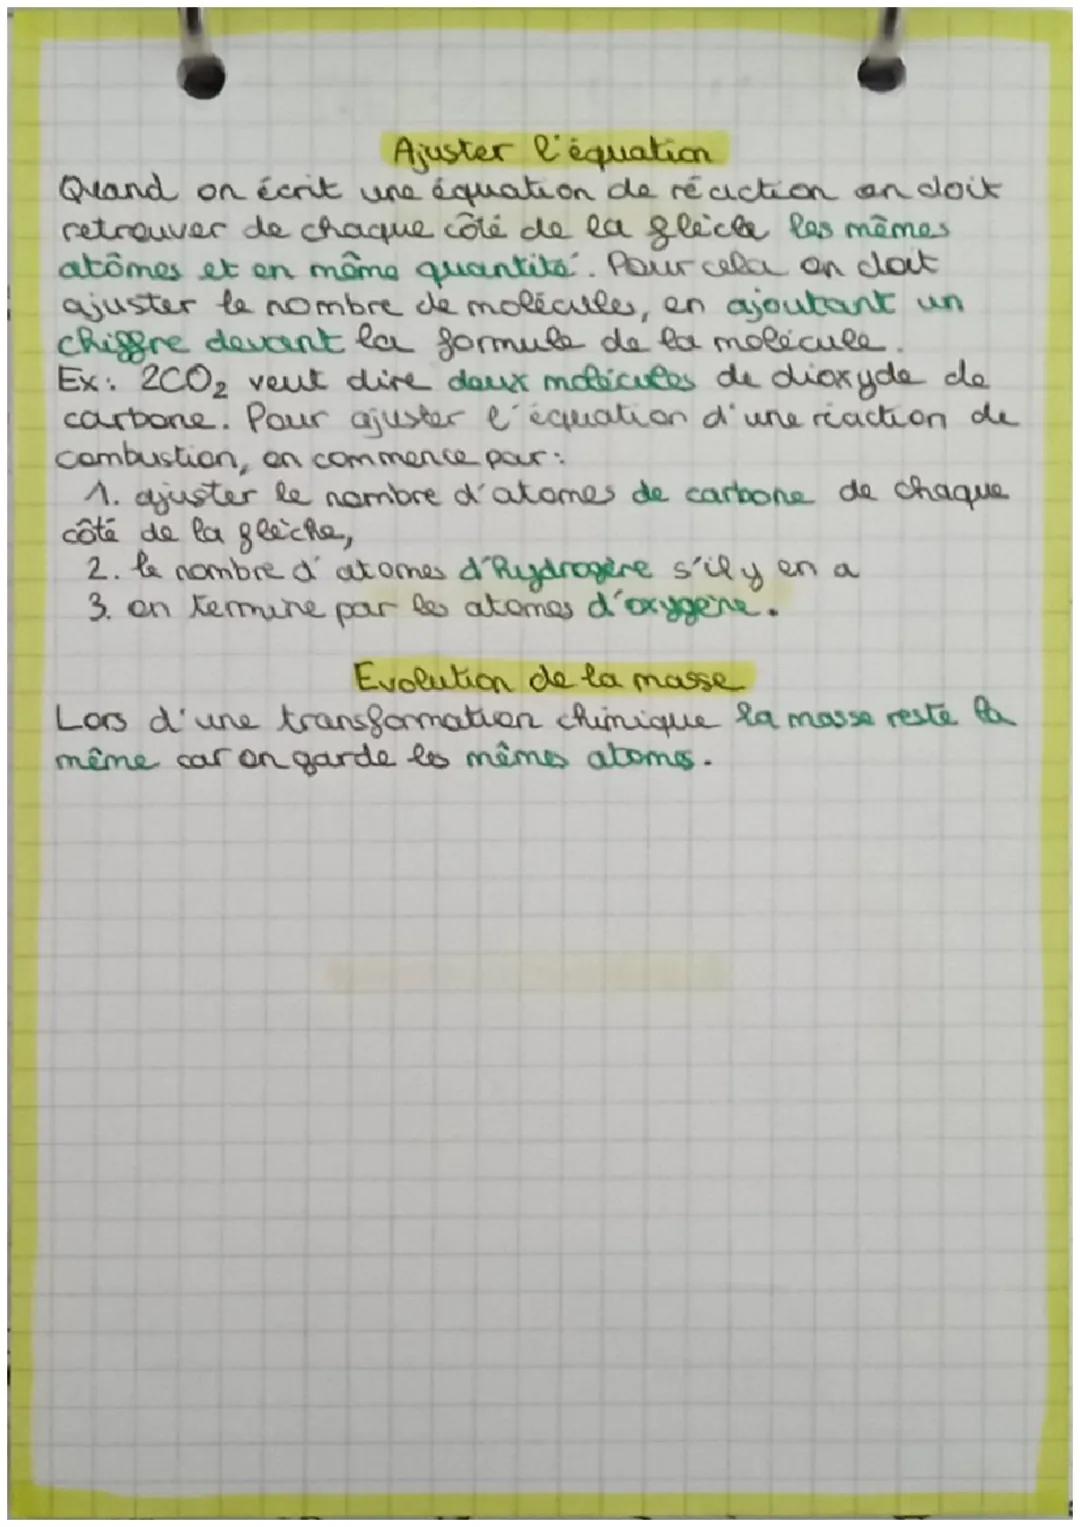 Ajuster l'équation
Quand on écrit une équation de réaction on doit
retrouver de chaque côté de la flèche les mêmes
atômes et en même quantité. Pour cela on doit
ajuster le nombre de molécules, en ajoutant un
chiffre devant la formule de la molécule.
Ex: 2CO₂ veut dire deux molécules de dioxyde de
carbone. Pour ajuster l'équation d'une réaction de
combustion, on commence par:
1. ajuster le nombre d'atomes de carbone de chaque
côté de la flèche,
2. le nombre d'atomes d'hydrogène s'il y en a
3. on termine par les atomes d'oxygène.
Evolution de la masse
Lors d'une transformation chimique la masse reste la
même car on garde les mêmes atomes.